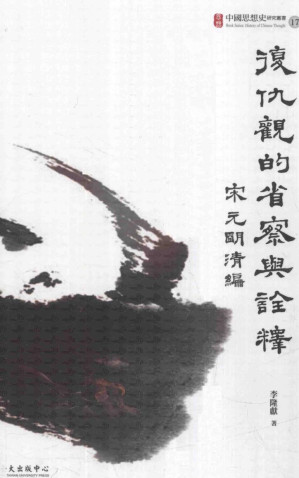 中國思想史研究叢書 17
復仇觀的省察與詮釋
宋元明清編
李隆獻 著
大出版中心